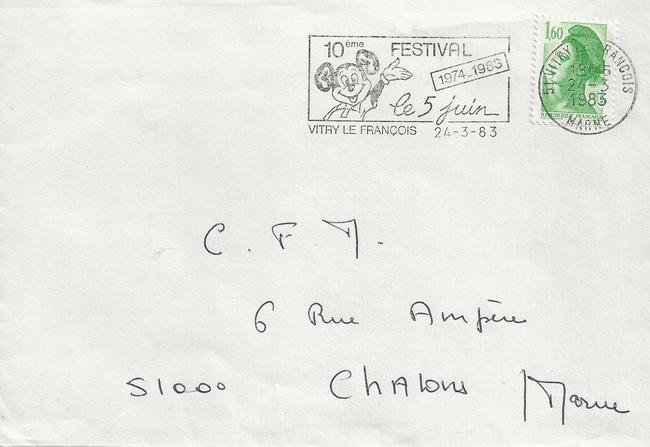 10ème FESTIVAL
1974-1983
le 5 juin
VITRY LE FRANÇOIS 24-3-83
1,60
REPUBLIQUE FRANÇAISE
51 VITRY LE FRANÇOIS
24-3
1983
MARNE
C. F. T.
6 Rue Ampère
51000 Chalons / Marne